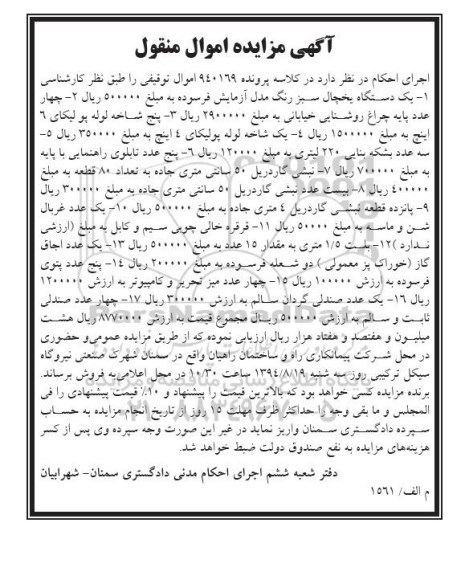 آگهی مزایده اموال منقول
اجرای احکام در نظر دارد در کلاسه پرونده ۹۴۰۱۶۹ اموال توقیفی را طبق نظر کارشناسی
۱- یک دستگاه یخچال سبز رنگ مدل آزمایش فرسوده به مبلغ ۵۰۰۰۰۰ ریال ۲- چهار
عدد پایه چراغ روشنایی خیابانی به مبلغ ۲۹۰۰۰۰۰ ریال ۳- پنج شاخه لوله پولیکای ۶
اینچ به مبلغ ۱۵۰۰۰۰۰ ریال ۴- یک شاخه لوله پولیکای ۴ اینچ به مبلغ ۳۵۰۰۰۰ ریال ۵-
سه عدد بشکه بنایی ۲۲۰ لیتری به مبلغ ۱۲۰۰۰۰ ریال ۶- پنج عدد تابلوی راهنمایی با پایه
به مبلغ ۷۰۰۰۰۰ ریال ۷- نبشی گاردریل ۵۰ سانتی متری جاده به تعداد ۸۰ قطعه به مبلغ
۴۰۰۰۰۰ ریال ۸- بیست عدد نبشی گاردریل ۵۰ سانتی متری جاده به مبلغ ۳۰۰۰۰۰ ریال
۹- پانزده قطعه نبشی گاردریل ۴ متری جاده به مبلغ ۵۰۰۰۰۰ ریال ۱۰- یک عدد غربال
شن و ماسه به مبلغ ۵۰۰۰۰ ریال ۱۱- قرقره خالی چوبی سیم و کابل به مبلغ (ارزشی
ندارد) ۱۲- پلیت ۱/۵ متری به مقدار ۱۵ عدد به مبلغ ۵۰۰۰۰۰ ریال ۱۳- یک عدد اجاق
گاز (خوراک پز معمولی) دو شعله فرسوده به مبلغ ۲۰۰۰۰۰ ریال ۱۴- پنج عدد پتوی
فرسوده به ارزش ۱۰۰۰۰۰ ریال ۱۵- چهار عدد میز تحریر و کامپیوتر به ارزش ۱۲۰۰۰۰۰
ریال ۱۶- یک عدد صندلی گردان سالم به ارزش ۳۰۰۰۰۰ ریال ۱۷- چهار عدد صندلی
ثابت و سالم به ارزش ۵۰۰۰۰۰ ریال مجموع قیمت به ارزش ۸۷۷۰۰۰۰ ریال هشت
میلیون و هفتصد و هفتاد هزار ریال ارزیابی نموده که از طریق مزایده عمومی و حضوری
در محل شرکت پیمانکاری راه و ساختمان راهیان واقع در سمنان شهرک صنعتی نیروگاه
سیکل ترکیبی روز سه شنبه ۱۳۹۴/۸/۱۹ ساعت ۱۰/۳۰ در محل اعلامی به فروش برساند.
برنده مزایده کسی خواهد بود که بالاترین قیمت را پیشنهاد و ۱۰٪ قیمت پیشنهادی را فی
المجلس و ما بقی وجه را حداکثر ظرف مهلت ۱۵ روز از تاریخ انجام مزایده به حساب
سپرده دادگستری سمنان واریز نماید در غیر این صورت وجه سپرده وی پس از کسر
هزینه‌های مزایده به نفع صندوق دولت ضبط خواهد شد.
دفتر شعبه ششم اجرای احکام مدنی دادگستری سمنان- شهرابیان
م الف/ ۱۵۶۱